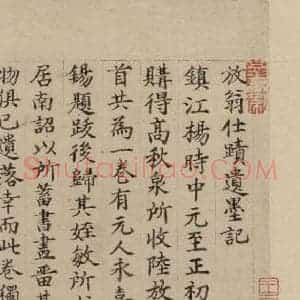 放翁仕蹟遺墨記
鎮江楊時中元至正初
購得高秋泉所收陸放
首共為一卷有元人未嘉
錫題跋後歸其姪敏所
居南詔以所蓄書畫雷其
物俱已遺落幸而此卷獨